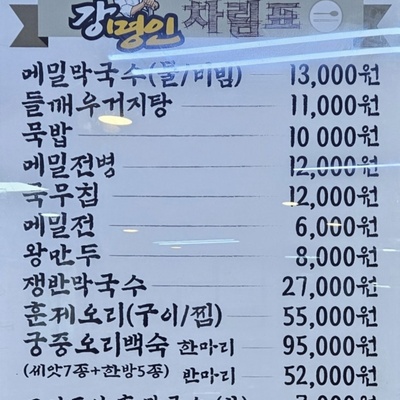 강명인 차림표
메밀막국수(물/비빔) 13,000원
들깨우거지탕 11,000원
묵밥 10 000원
메밀전병 12,000원
묵무침 12,000원
메밀전 6,000원
왕만두 8,000원
쟁반막국수 27,000원
훈제오리(구이/찜) 55,000원
궁중오리백숙 한마리 95,000원
(씨앗7종+한방5종) 반마리 52,000원